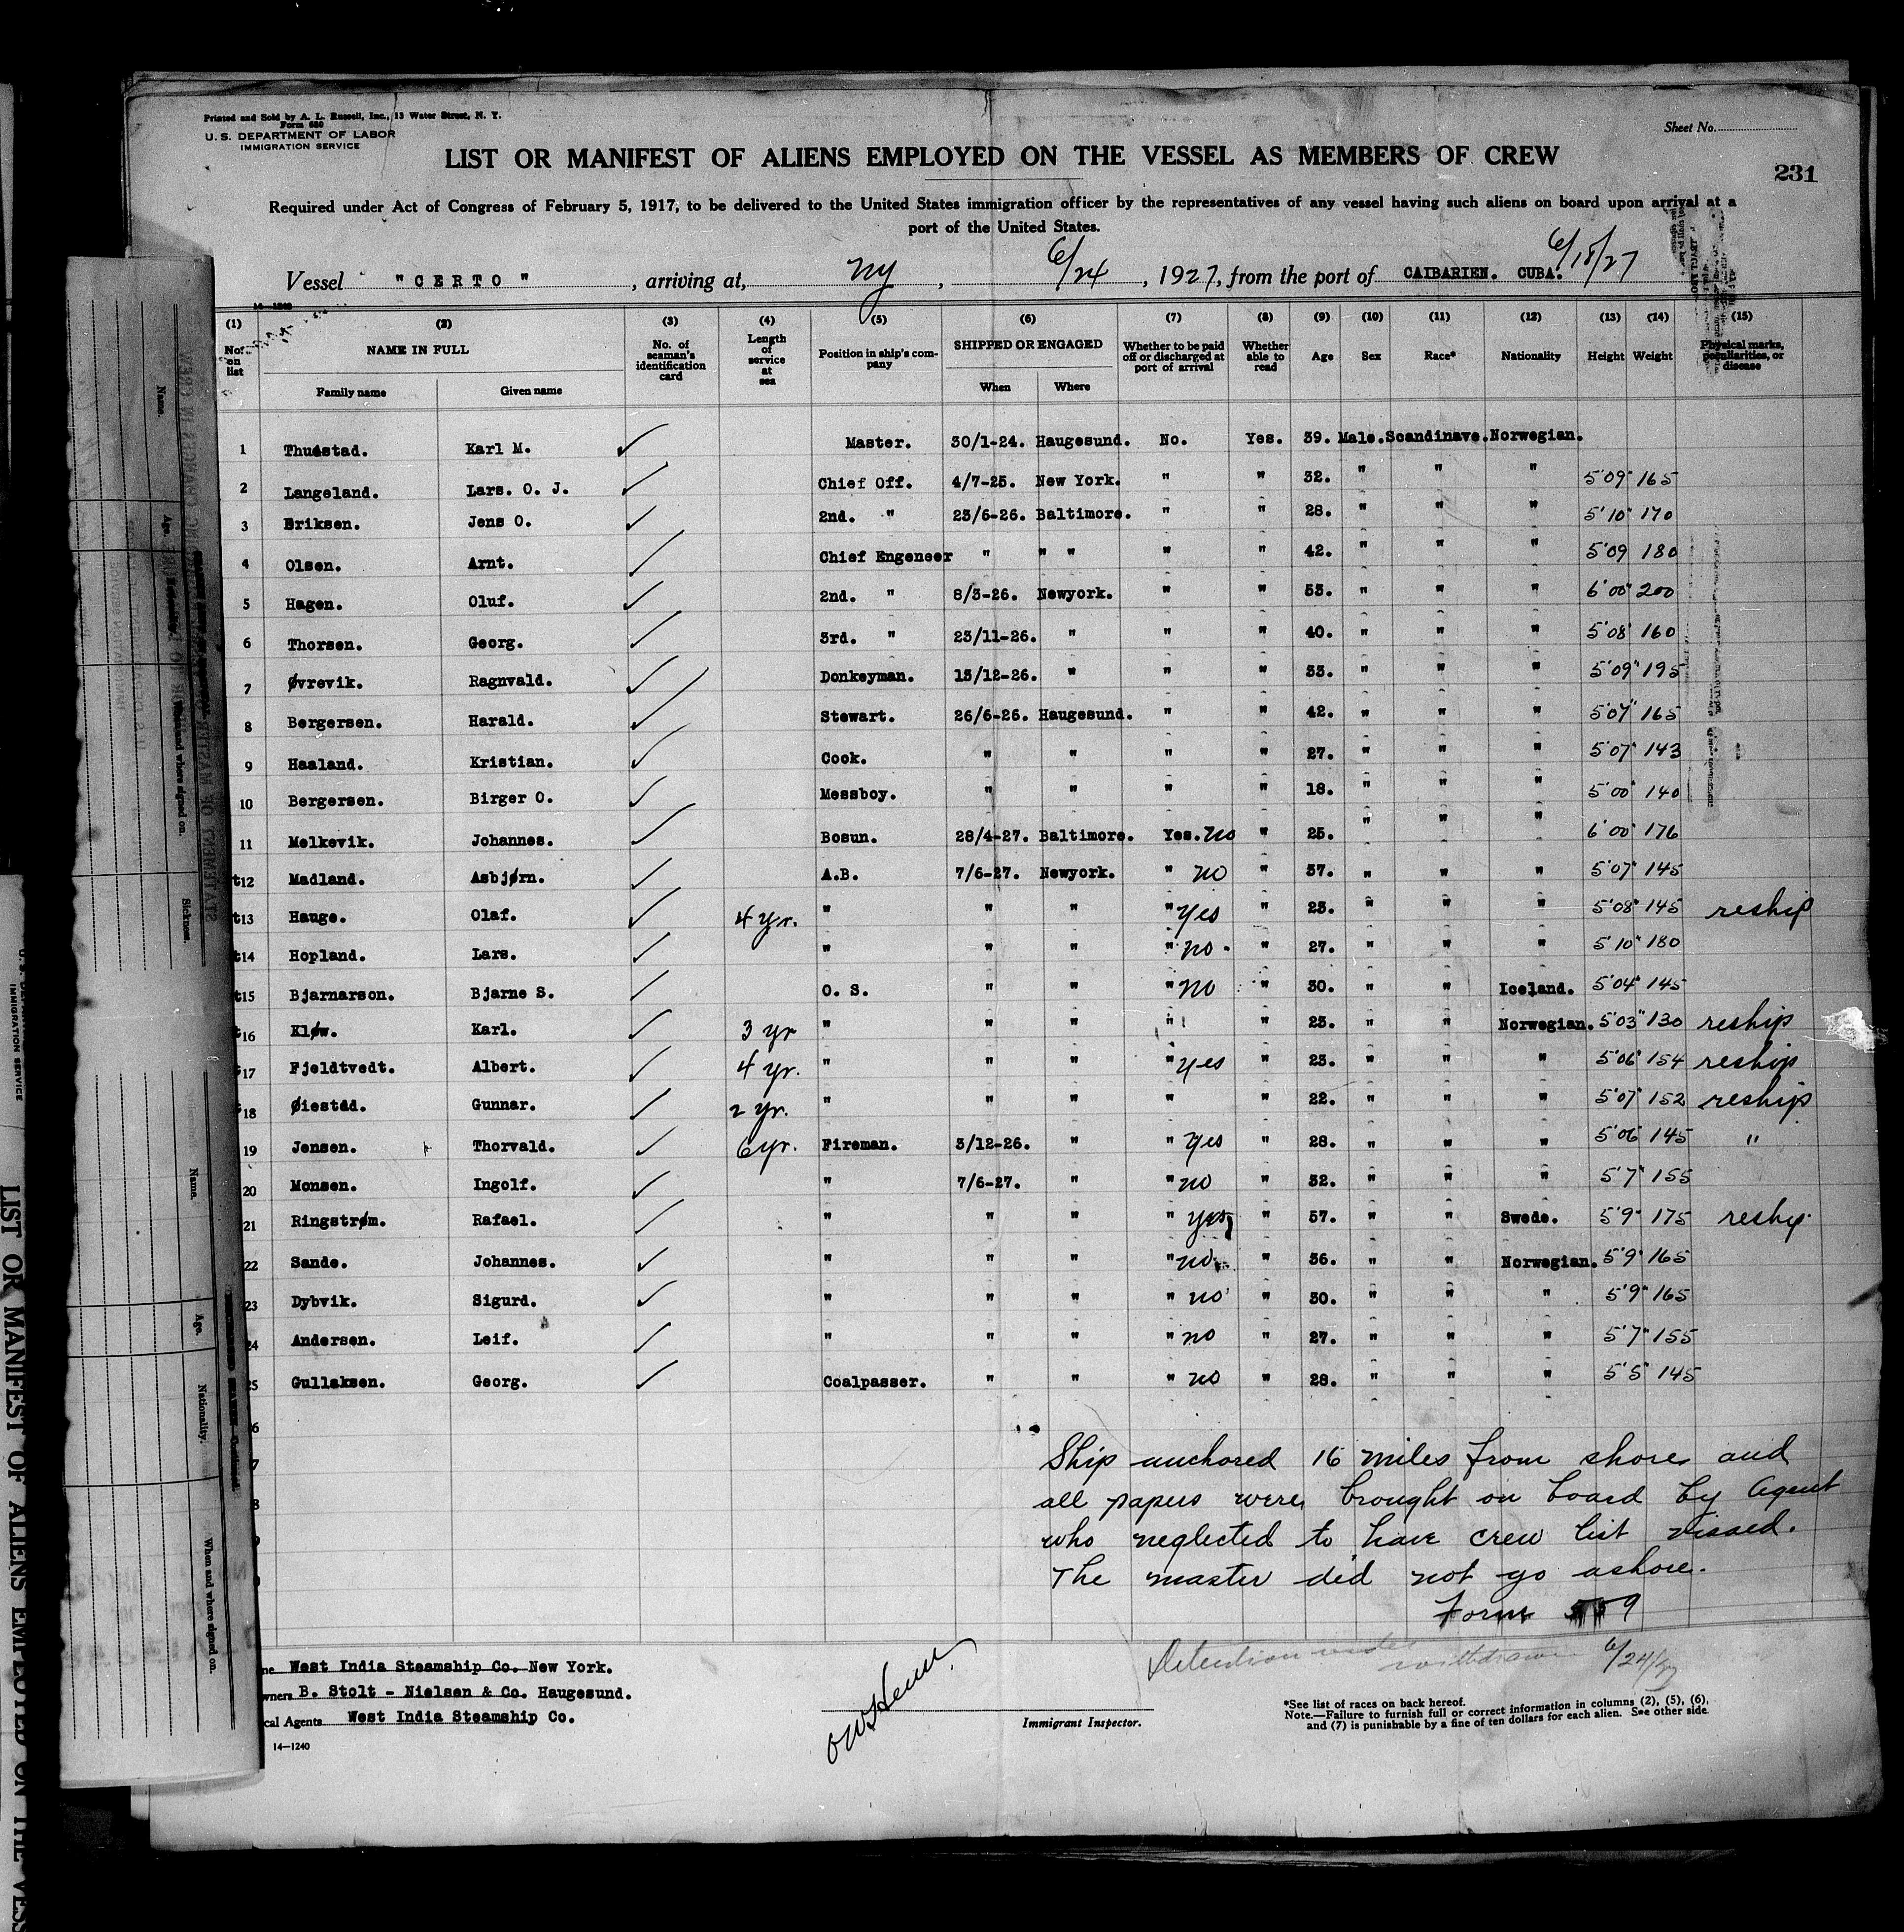 Printed and Sold by A. L. Russell, Inc., 13 Water Street, N. Y.
Form 680
U. S. DEPARTMENT OF LABOR
IMMIGRATION SERVICE
Sheet No.
LIST OR MANIFEST OF ALIENS EMPLOYED ON THE VESSEL AS MEMBERS OF CREW
231
Required under Act of Congress of February 5, 1917, to be delivered to the United States immigration officer by the representatives of any vessel having such aliens on board upon arrival at a
port of the United States.
Vessel "CERTO", arriving at, NY, 6/24, 1927, from the port of CAIBARIEN. CUBA. 6/18/27
14-1240
(1) (2) (3) (4) (5) (6) (7) (8) (9) (10) (11) (12) (13) (14) (15)
No. on list NAME IN FULL Family name Given name No. of seaman's identification card Length of service at sea Position in ship's company SHIPPED OR ENGAGED When Where Whether to be paid off or discharged at port of arrival Whether able to read Age Sex Race* Nationality Height Weight Physical marks, peculiarities, or disease
1 Thuestad. Karl M. Master. 30/1-24. Haugesund. No. Yes. 39. Male. Scandinave. Norwegian.
2 Langeland. Lars. O. J. Chief Off. 4/7-25. New York. " " 32. " " " 5'09" 165
3 Eriksen. Jens O. 2nd. " 23/6-26. Baltimore. " " 28. " " " 5'10" 170
4 Olsen. Arnt. Chief Engeneer " " " " " 42. " " " 5'09 180
5 Hagen. Oluf. 2nd. " 8/3-26. Newyork. " " 53. " " " 6'00" 200
6 Thorsen. Georg. 3rd. " 23/11-26. " " " 40. " " " 5'08" 160
7 Øvrevik. Ragnvald. Donkeyman. 13/12-26. " " " 33. " " " 5'09" 195
8 Bergersen. Harald. Stewart. 26/6-26. Haugesund. " " 42. " " " 5'07" 165
9 Haaland. Kristian. Cook. " " " " 27. " " " 5'07" 143
10 Bergersen. Birger O. Messboy. " " " " 18. " " " 5'00" 140
11 Melkevik. Johannes. Bosun. 28/4-27. Baltimore. Yes. No " 25. " " " 6'00" 176
12 Madland. Asbjørn. A.B. 7/6-27. Newyork. " no " 37. " " " 5'07" 145
13 Hauge. Olaf. 4 yr. " " " " Yes " 23. " " " 5'08" 145 reship
14 Hopland. Lars. " " " " no " 27. " " " 5'10" 180
15 Bjarnarson. Bjarne S. O. S. " " " no " 30. " " Iceland. 5'04" 145
16 Kløw. Karl. 3 yr " " " " " 23. " " Norwegian. 5'03" 130 reship
17 Fjeldtvedt. Albert. 4 yr. " " " " Yes " 23. " " " 5'06" 154 reship
18 Øiestad. Gunnar. 2 yr. " " " " " 22. " " " 5'07" 152 reship
19 Jensen. Thorvald. 6 yr. Fireman. 3/12-26. " " Yes " 28. " " " 5'06" 145 "
20 Monsen. Ingolf. " 7/6-27. " " no " 32. " " " 5'7" 155
21 Ringstrøm. Rafael. " " " " yes " 57. " " Swede. 5'9" 175 reship
22 Sande. Johannes. " " " " no " 36. " " Norwegian. 5'9" 165
23 Dybvik. Sigurd. " " " " no " 30. " " " 5'9" 165
24 Andersen. Leif. " " " " no " 27. " " " 5'7" 155
25 Gullaksen. Georg. Coalpasser. " " " no " 28. " " " 5'5" 145
Ship anchored 16 miles from shore and
all papers were brought on board by Agent
who neglected to have crew list visaed.
The master did not go ashore.
Form 559
Detention withdrawn 6/24/27
West India Steamship Co. New York.
Owners B. Stolt - Nielsen & Co. Haugesund.
Local Agents West India Steamship Co.
14-1240
Immigrant Inspector.
*See list of races on back hereof.
Note.—Failure to furnish full or correct information in columns (2), (5), (6),
and (7) is punishable by a fine of ten dollars for each alien. See other side.
Name.
Age.
Nationality.
When and where signed on.
Sickness.
STATEMENT OF MASTER
IMMIGRATION SERVICE
LIST OR MANIFEST OF ALIENS EMPLOYED ON THE VESS